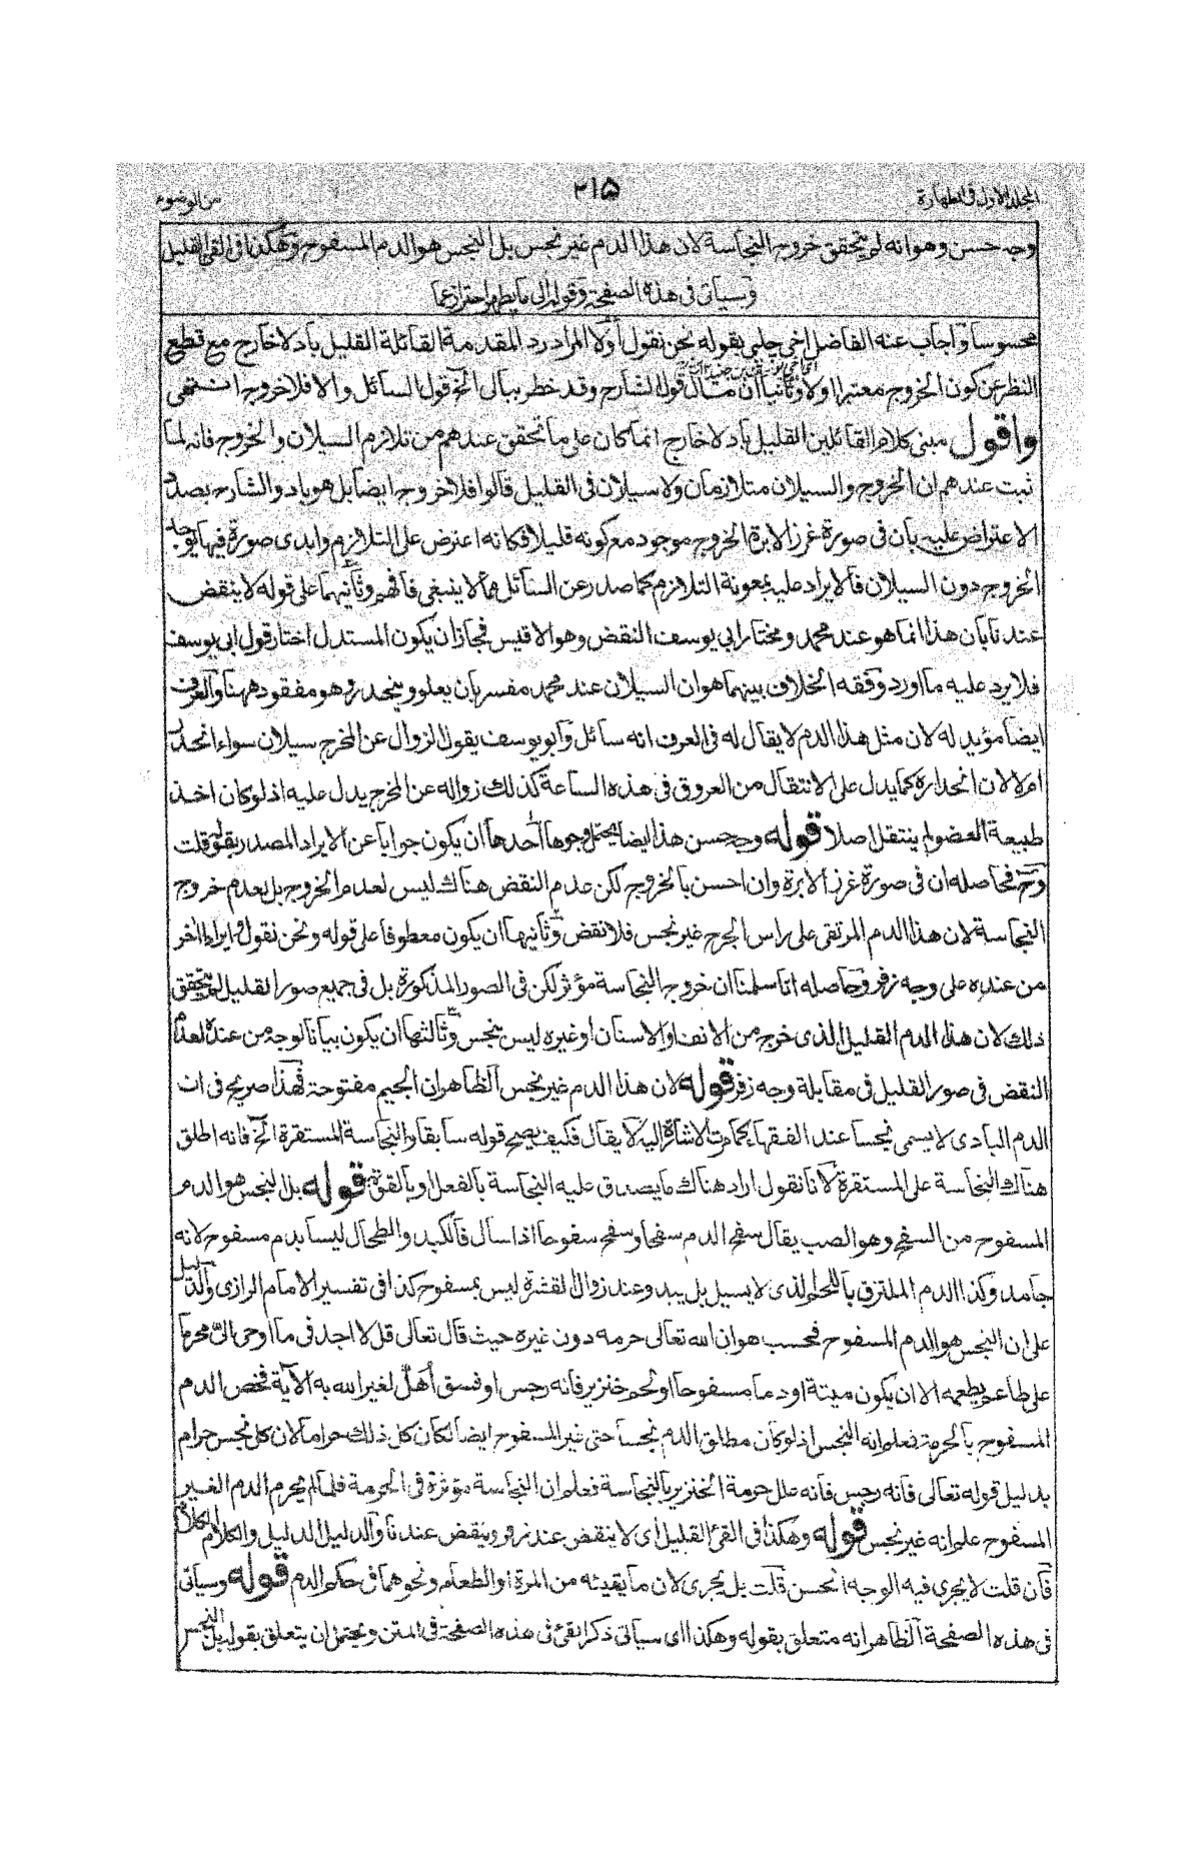 المجلد الاول فى الطهارة
٢١٥
من الوضوء
وجه حسن وهو انه لم يتحقق خروج النجاسة لان هذا الدم غير نجس بل النجس هو الدم المسفوح وهكذا فى القئ القليل
وسياتى فى هذه الصفحة وقوله الى ما يطهر احتراز عما
محسوسا واجاب عنه الفاضل اخى چلپى بقوله نحن نقول اولا المراد رد المقدمة القائلة القليل باد لا خارج مع قطع
النظر عن كون الخروج معتبرا اولا وثانيا ان مآل قول الشارح وقد خطر ببالى الخ قول السائل والا فلا خروج انتهى
واقول مبنى كلام القائلين القليل باد لا خارج انما كان على ما تحقق عندهم من تلازم السيلان والخروج فانه لما
ثبت عندهم ان الخروج والسيلان متلازمان ولا سيلان فى القليل قالوا فلا خروج ايضا بل هو باد والشارح بصدد
الاعتراض عليه بان فى صورة غرز الابرة الخروج موجود مع كونه قليلا فكانه اعترض على التلازم وابدى صورة فيها يوجد
الخروج دون السيلان فالايراد عليه بمعونة التلازم كما صدر عن السائل مما لا ينبغى فافهم وثانيهما على قوله لا ينقض
عندنا بان هذا انما هو عند محمد ومختار ابى يوسف النقض وهو الاقيس فجاز ان يكون المستدل اختار قول ابى يوسف
فلا يرد عليه ما اورد وفقه الخلاف بينهما هو ان السيلان عند محمد مفسر بان يعلو وينحدر وهو مفقود ههنا والعرف
ايضا مؤيد له لان مثل هذا الدم لا يقال له فى العرف انه سائل وابو يوسف يقول الزوال عن المخرج سيلان سواء انحدر
ام لا لان انحداره كما يدل على الانتقال من العروق فى هذه الساعة كذلك زواله عن المخرج يدل عليه اذ لو كان اخذ
طبيعة العضو لم ينتقل اصلا قوله وجه حسن هذا ايضا يحتمل وجوها احدها ان يكون جوابا عن الايراد المصدر بقوله قلت
وح فحاصله ان فى صورة غرز الابرة وان احسن بالخروج لكن عدم النقض هناك ليس لعدم الخروج بل لعدم خروج
النجاسة لان هذا الدم المرتقى على راس الجرح غير نجس فلا نقض وثانيهما ان يكون معطوفا على قوله ونحن نقول وايرادا اخر
من عنده على وجه زفر وحاصله انا سلمنا ان خروج النجاسة مؤثر لكن فى الصور المذكورة بل فى جميع صور القليل لم يتحقق
ذلك لان هذا الدم القليل الذى خرج من الانف او الاسنان او غيره ليس بنجس وثالثها ان يكون بيانا لوجه من عنده لعدم
النقض فى صور القليل فى مقابلة وجه زفر قوله لان هذا الدم غير نجس الظاهر ان الجيم مفتوحة فهذا صريح فى ان
الدم البادى لا يسمى نجسا عند الفقهاء كما مرت الاشارة اليه لا يقال فكيف يصح قوله سابقا والنجاسة المستقرة الخ فانه اطلق
هناك النجاسة على المستقرة لانا نقول اراد هناك ما يصدق عليه النجاسة بالفعل او بالقوة قوله بل النجس هو الدم
المسفوح من السفح وهو الصب يقال سفح الدم سفحا وسفح سفوحا اذا سال فالكبد والطحال ليسا بدم مسفوح لانه
جامد وكذا الدم الملتزق باللحم الذى لا يسيل بل يبد وعند زوال القشرة ليس بمسفوح كذا فى تفسير الامام الرازى والدليل
على ان النجس هو الدم المسفوح فحسب هو ان الله تعالى حرمه دون غيره حيث قال تعالى قل لا اجد فى ما اوحى الىّ محرما
على طاعم يطعمه الا ان يكون ميتة او دما مسفوحا او لحم خنزير فانه رجس او فسق اهل لغير الله به الآية فخص الدم
المسفوح بالحرمة فعلم انه النجس اذ لو كان مطلق الدم نجسا حتى غير المسفوح ايضا لكان كل ذلك حراما لان كل نجس حرام
بدليل قوله تعالى فانه رجس فانه علل حرمة الخنزير بالنجاسة فعلم ان النجاسة مؤثرة فى الحرمة فلما لم يحرم الدم الغير
المسفوح علم انه غير نجس قوله وهكذا فى القئ القليل اى لا ينقض عندنا وينقض عند زفر والدليل الدليل والكلام الكلام
فان قلت لا يجرى فيه الوجه الحسن قلت بل يجرى لان ما يقيئه من المرة او الطعام ونحوهما فى حكم الدم قوله وسياتى
فى هذه الصفحة الظاهر انه متعلق بقوله وهكذا اى سياتى ذكر القئ فى هذه الصفحة فى المتن ويحتمل ان يتعلق بقوله بل النجس